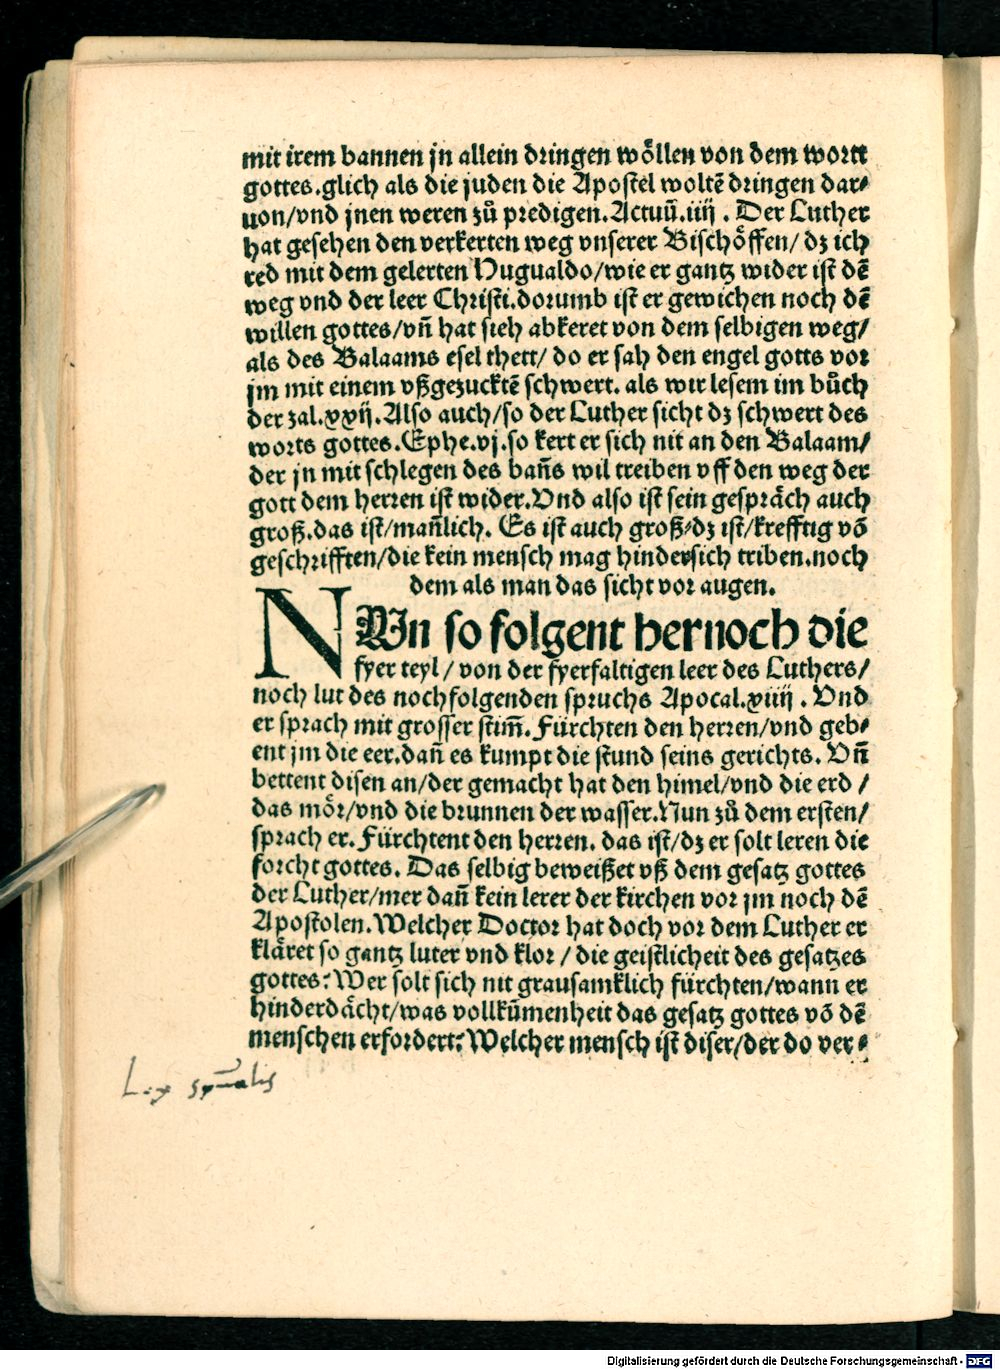 mit irem bannen jn allein dringen wöllen von dem wortt
gottes.glich als die juden die Apostel woltē dringen dar⸗
uon/vnd jnen weren zů predigen.Actuū.iiij. Der Luther
hat gesehen den verkerten weg vnserer Bischöffen/ dz ich
red mit dem gelerten Hugualdo/wie er gantz wider ist dē
weg vnd der leer Christi.dorumb ist er gewichen noch dē
willen gottes/vñ hat sieh abkeret von dem selbigen weg/
als des Balaams esel thett/ do er sah den engel gotts vor
jm mit einem vßgezucktē schwert. als wir lesem im bůch
der zal.xxij.Also auch/so der Luther sicht dz schwert des
worts gottes.Ephe.vj.so kert er sich nit an den Balaam/
der jn mit schlegen des bañs wil treiben vff den weg der
gott dem herren ist wider.Vnd also ist sein gespräch auch
groß.das ist/mañlich. Es ist auch groß⸗dz ist/krefftig vō
geschrifften/die kein mensch mag hindersich triben.noch
dem als man das sicht vor augen.
NVn so folgent hernoch die
fyer teyl/ von der fyerfaltigen leer des Luthers/
noch lut des nochfolgenden spruchs Apocal.xiiij. Vnd
er sprach mit grosser stim̄. Fürchten den herren/vnd geb⸗
ent jm die eer.dañ es kumpt die stund seins gerichts. Vñ
bettent disen an/der gemacht hat den himel/vnd die erd/
das mör/vnd die brunnen der wasser.Nun zů dem ersten/
sprach er. Fürchtent den herren. das ist/dz er solt leren die
forcht gottes. Das selbig beweißet vß dem gesatz gottes
der Luther/mer dañ kein lerer der kirchen vor jm noch dē
Apostolen.Welcher Doctor hat doch vor dem Luther er
kläret so gantz luter vnd klor/ die geistlicheit des gesatzes
gottes? Wer solt sich nit grausamklich fürchten/wann er
hinderdächt/was vollkūmenheit das gesatz gottes vō dē
menschen erfordert? Welcher mensch ist diser/der do ver⸗
Digitalisierung gefördert durch die Deutsche Forschungsgemeinschaft - DFG